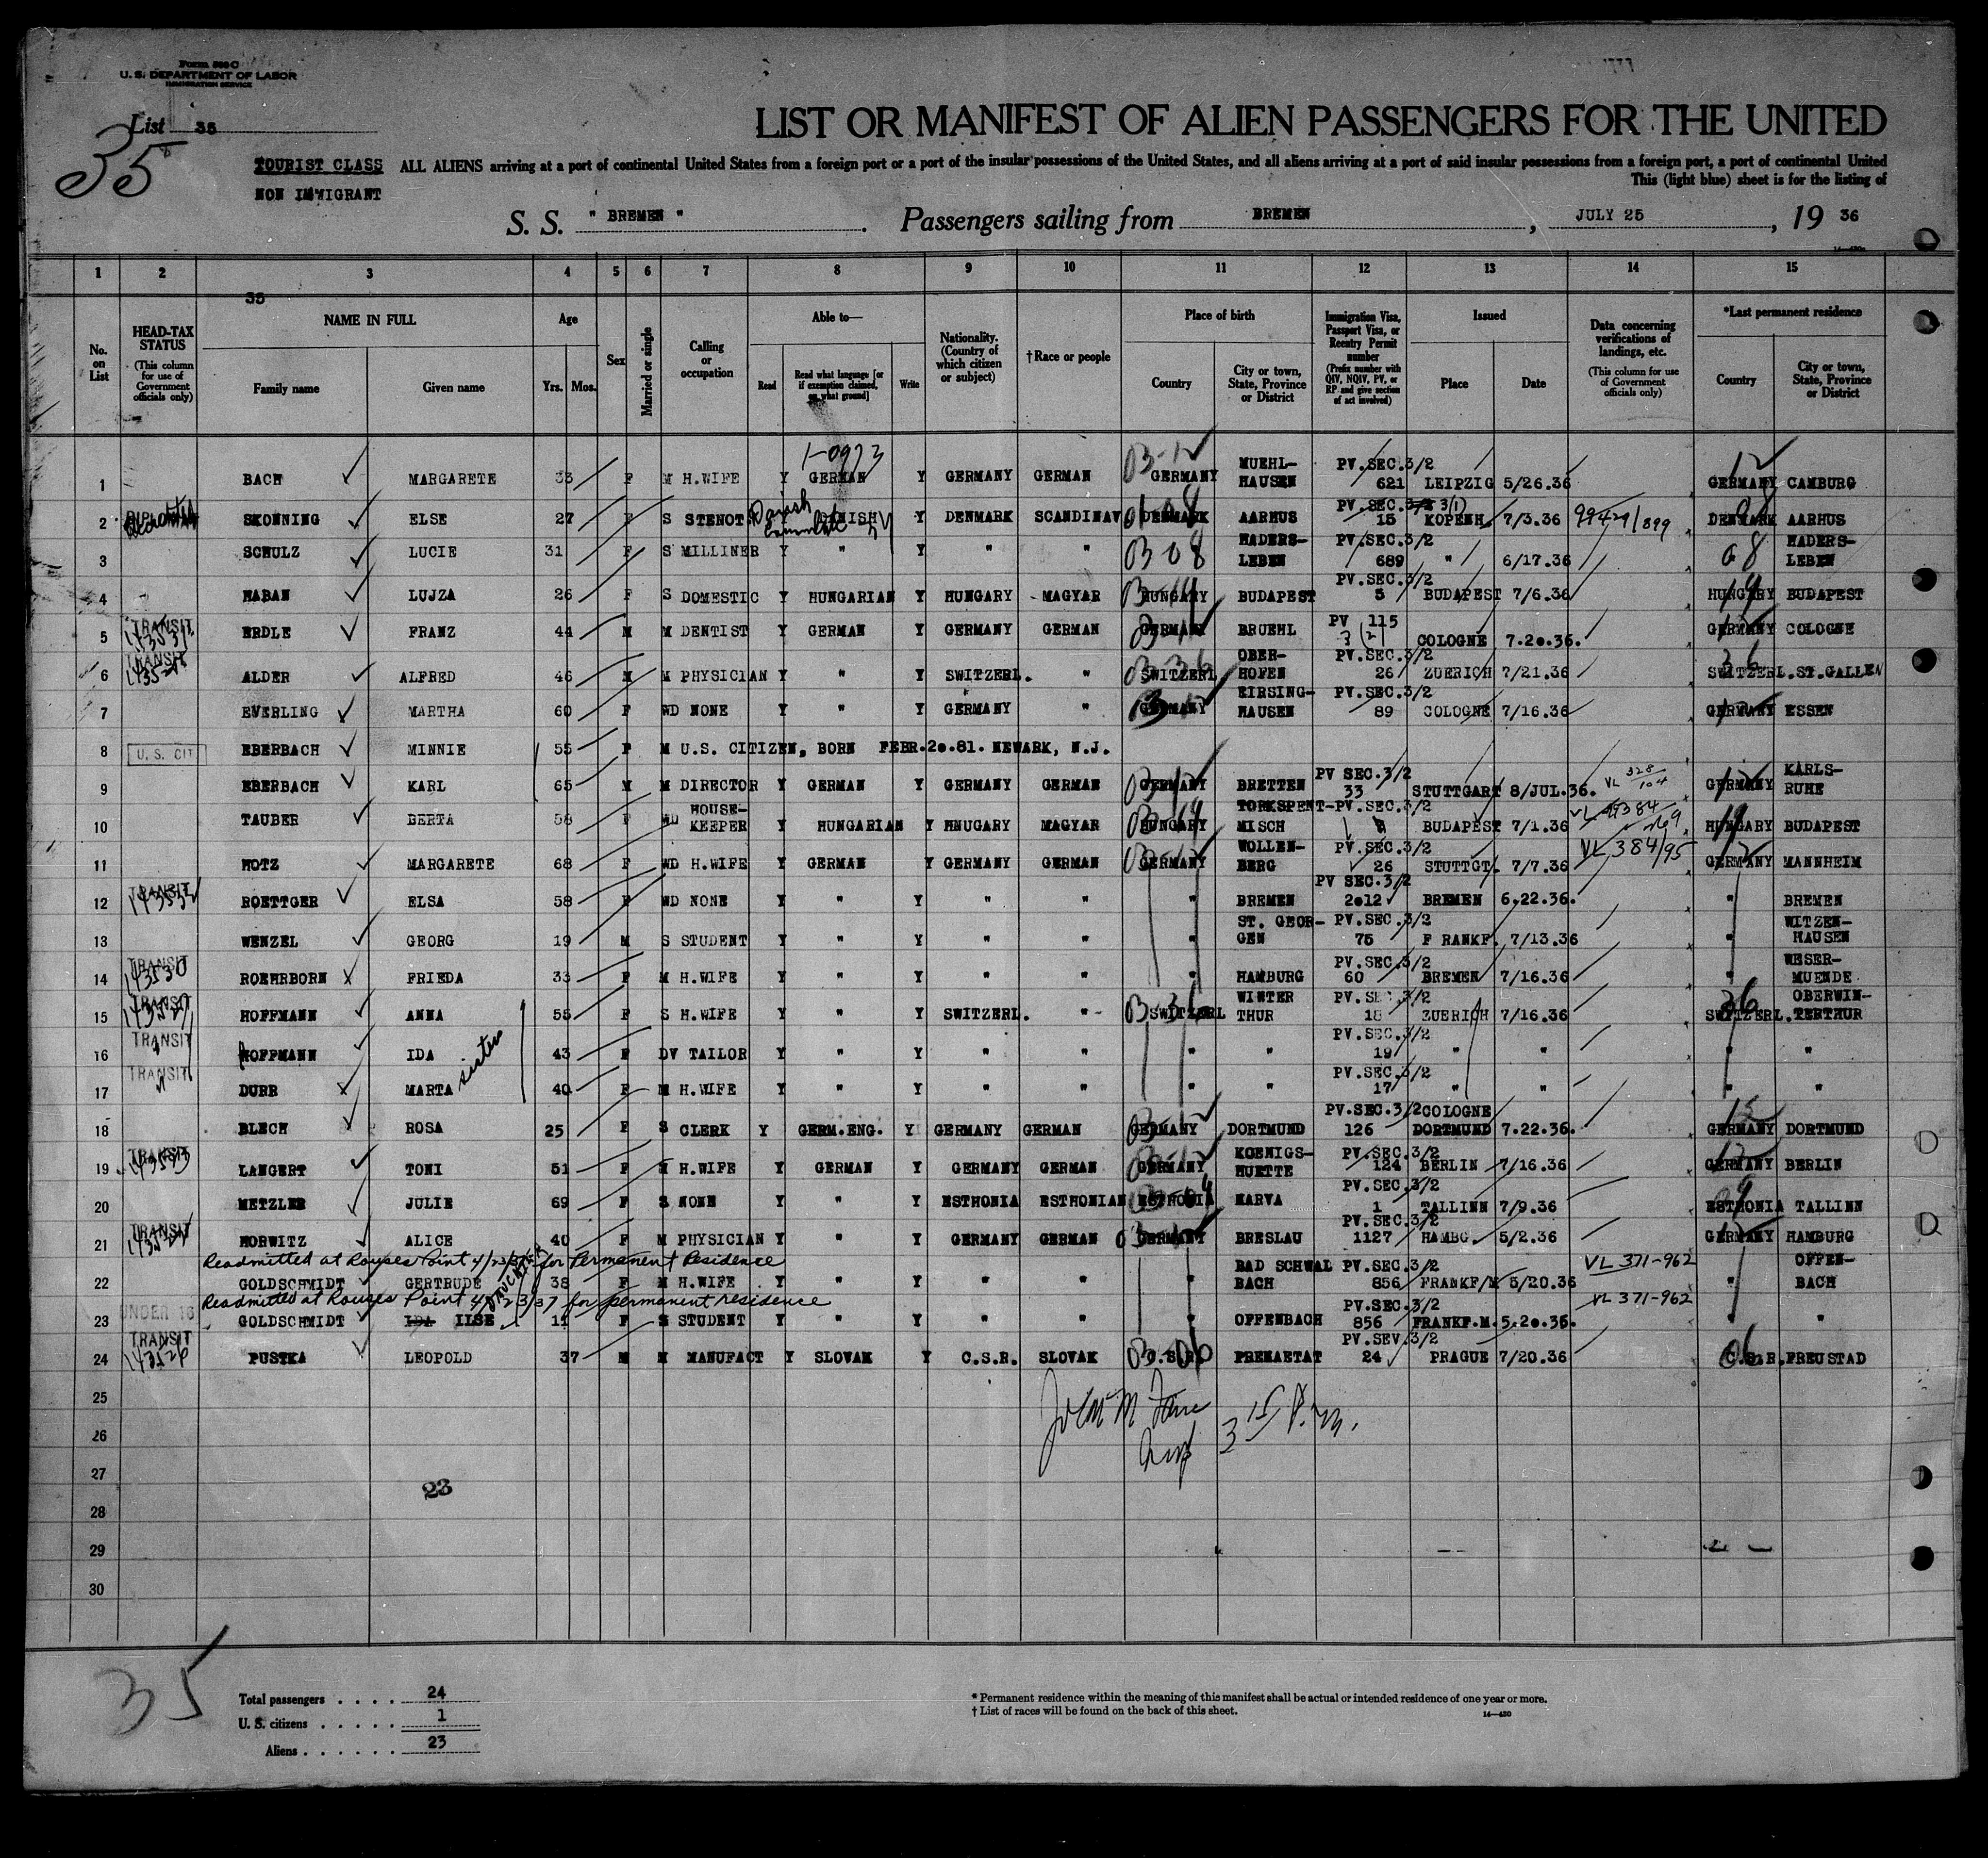 Form 500 C
U. S. DEPARTMENT OF LABOR
IMMIGRATION SERVICE
List 35
35
LIST OR MANIFEST OF ALIEN PASSENGERS FOR THE UNITED
TOURIST CLASS ALL ALIENS arriving at a port of continental United States from a foreign port or a port of the insular possessions of the United States, and all aliens arriving at a port of said insular possessions from a foreign port, a port of continental United
NON IMMIGRANT This (light blue) sheet is for the listing of
S. S. " BREMEN " . Passengers sailing from BREMEN , JULY 25 , 19 36
1 2 3 4 5 6 7 8 9 10 11 12 13 14 15
35
No. on List
HEAD-TAX STATUS (This column for use of Government officials only)
NAME IN FULL Family name Given name
Age Yrs. Mos.
Sex
Married or single
Calling or occupation
Able to— Read Read what language [or if exemption claimed, on what ground] Write
Nationality. (Country of which citizen or subject)
†Race or people
Place of birth Country City or town, State, Province or District
Immigration Visa, Passport Visa, or Reentry Permit number (Prefix number with QIV, NQIV, PV, or RP and give section of act involved)
Issued Place Date
Data concerning verifications of landings, etc. (This column for use of Government officials only)
*Last permanent residence Country City or town, State, Province or District
1 BACH MARGARETE 33 F M H.WIFE Y GERMAN Y GERMANY GERMAN GERMANY MUEHL-HAUSEN PV.SEC.3/2 621 LEIPZIG 5/26.36 GERMANY CAMBURG
2 SKONNING ELSE 27 F S STENOT. DANISH Y DENMARK SCANDINAV DENMARK AARHUS PV.SEC. 3(1) 15 KOPENH. 7/3.36 DENMARK AARHUS
3 SCHULZ LUCIE 31 F S MILLINER Y " Y " " 03 08 HADERS-LEBEN PV.SEC.3/2 689 " 6/17.36 08 HADERS-LEBEN
4 HABAN LUJZA 26 F S DOMESTIC Y HUNGARIAN Y HUNGARY MAGYAR HUNGARY BUDAPEST PV.SEC.3/2 5 BUDAPEST 7/6.36 HUNGARY BUDAPEST
5 TRANSIT ERDLE FRANZ 44 M M DENTIST Y GERMAN Y GERMANY GERMAN GERMANY BRUEHL PV 115 3(2) COLOGNE 7.20.36. GERMANY COLOGNE
6 TRANSIT ALDER ALFRED 46 M M PHYSICIAN Y " Y SWITZERL. " SWITZERL. OBER-HOFEN PV.SEC.3/2 26 ZUERICH 7/21.36 SWITZERL. ST.GALLEN
7 EVERLING MARTHA 60 F WD NONE Y " Y GERMANY " GERMANY EIRSING-HAUSEN PV.SEC.3/2 89 COLOGNE 7/16.36 GERMANY ESSEN
8 U. S. CIT EBERBACH MINNIE 55 F M U.S. CITIZEN, BORN FEBR.20.81. NEWARK, N.J.
9 EBERBACH KARL 65 M M DIRECTOR Y GERMAN Y GERMANY GERMAN GERMANY BRETTEN PV SEC.3/2 33 STUTTGART 8/JUL.36. VL 328/104 GERMANY KARLS-RUHE
10 TAUBER BERTA 58 F WD HOUSE-KEEPER Y HUNGARIAN Y HNUGARY MAGYAR HUNGARY TORKSPENT-MISCH PV.SEC.3/2 BUDAPEST 7/1.36 HUNGARY BUDAPEST
11 HOTZ MARGARETE 68 F WD H.WIFE Y GERMAN Y GERMANY GERMAN GERMANY WOLLEN-BERG PV.SEC.3/2 26 STUTTGT. 7/7.36 VL 384/95 GERMANY MANNHEIM
12 TRANSIT ROETTGER ELSA 58 F WD NONE Y " Y " " " BREMEN PV SEC.3/2 2012 BREMEN 6.22.36. " BREMEN
13 WENZEL GEORG 19 M S STUDENT Y " Y " " " ST. GEOR-GEN PV.SEC.3/2 75 F RANKF. 7/13.36 " WITZEN-HAUSEN
14 TRANSIT 143530 ROEHRBORN FRIEDA 33 F M H.WIFE Y " Y " " " HAMBURG PV.SEC.3/2 60 BREMEN 7/16.36 " WESER-MUENDE
15 TRANSIT HOFFMANN ANNA 55 F S H.WIFE Y " Y SWITZERL. " SWITZERL WINTER THUR PV. SEC.3/2 18 ZUERICH 7/16.36 SWITZERL. OBERWIN-TERTHUR
16 TRANSIT HOFFMANN IDA sisters 43 F DV TAILOR Y " Y " " " " PV.SEC.3/2 19 " " " "
17 TRANSIT DURR MARTA 40 F M H.WIFE Y " Y " " " " PV.SEC.3/2 17 " " " "
18 BLECH ROSA 25 F S CLERK Y GERM.ENG. Y GERMANY GERMAN GERMANY DORTMUND PV.SEC.3/2 126 COLOGNE DORTMUND 7.22.36. GERMANY DORTMUND
19 TRANSIT LANGERT TONI 51 F M H.WIFE Y GERMAN Y GERMANY GERMAN GERMANY KOENIGS-HUETTE PV.SEC.3/2 124 BERLIN 7/16.36 GERMANY BERLIN
20 METZLER JULIE 69 F S NONE Y " Y ESTHONIA ESTHONIAN ESTHONIA NARVA PV.SEC.3/2 1 TALLINN 7/9.36 ESTHONIA TALLINN
21 TRANSIT HORWITZ ALICE 40 F M PHYSICIAN Y " Y GERMANY GERMAN GERMANY BRESLAU PV.SEC.3/2 1127 HAMBG. 5/2.36 GERMANY HAMBURG
Readmitted at Rouses Point 4/23/37 for Permanent Residence
22 GOLDSCHMIDT GERTRUDE 38 F M H.WIFE Y " Y " " " BAD SCHWAL BACH PV.SEC.3/2 856 FRANKF/M 5/20.36 VL 371-962 " OFFEN-BACH
Readmitted at Rouses Point 4/23/37 for permanent residence
23 UNDER 16 GOLDSCHMIDT IDA ILSE 11 F S STUDENT Y " Y " " " OFFENBACH PV.SEC.3/2 856 FRANKF.M. 5.20.36. VL 371-962 " "
24 TRANSIT 143526 PUSTKA LEOPOLD 37 M M MANUFACT Y SLOVAK Y C.S.R. SLOVAK C.S.R. PREMAETAT PV.SEV.3/2 24 PRAGUE 7/20.36 C.S.R. FREUSTAD
25
26
27
23
28
29
30
35
Total passengers . . . . 24
U. S. citizens . . . . . 1
Aliens . . . . . . 23
* Permanent residence within the meaning of this manifest shall be actual or intended residence of one year or more.
† List of races will be found on the back of this sheet. 14—430